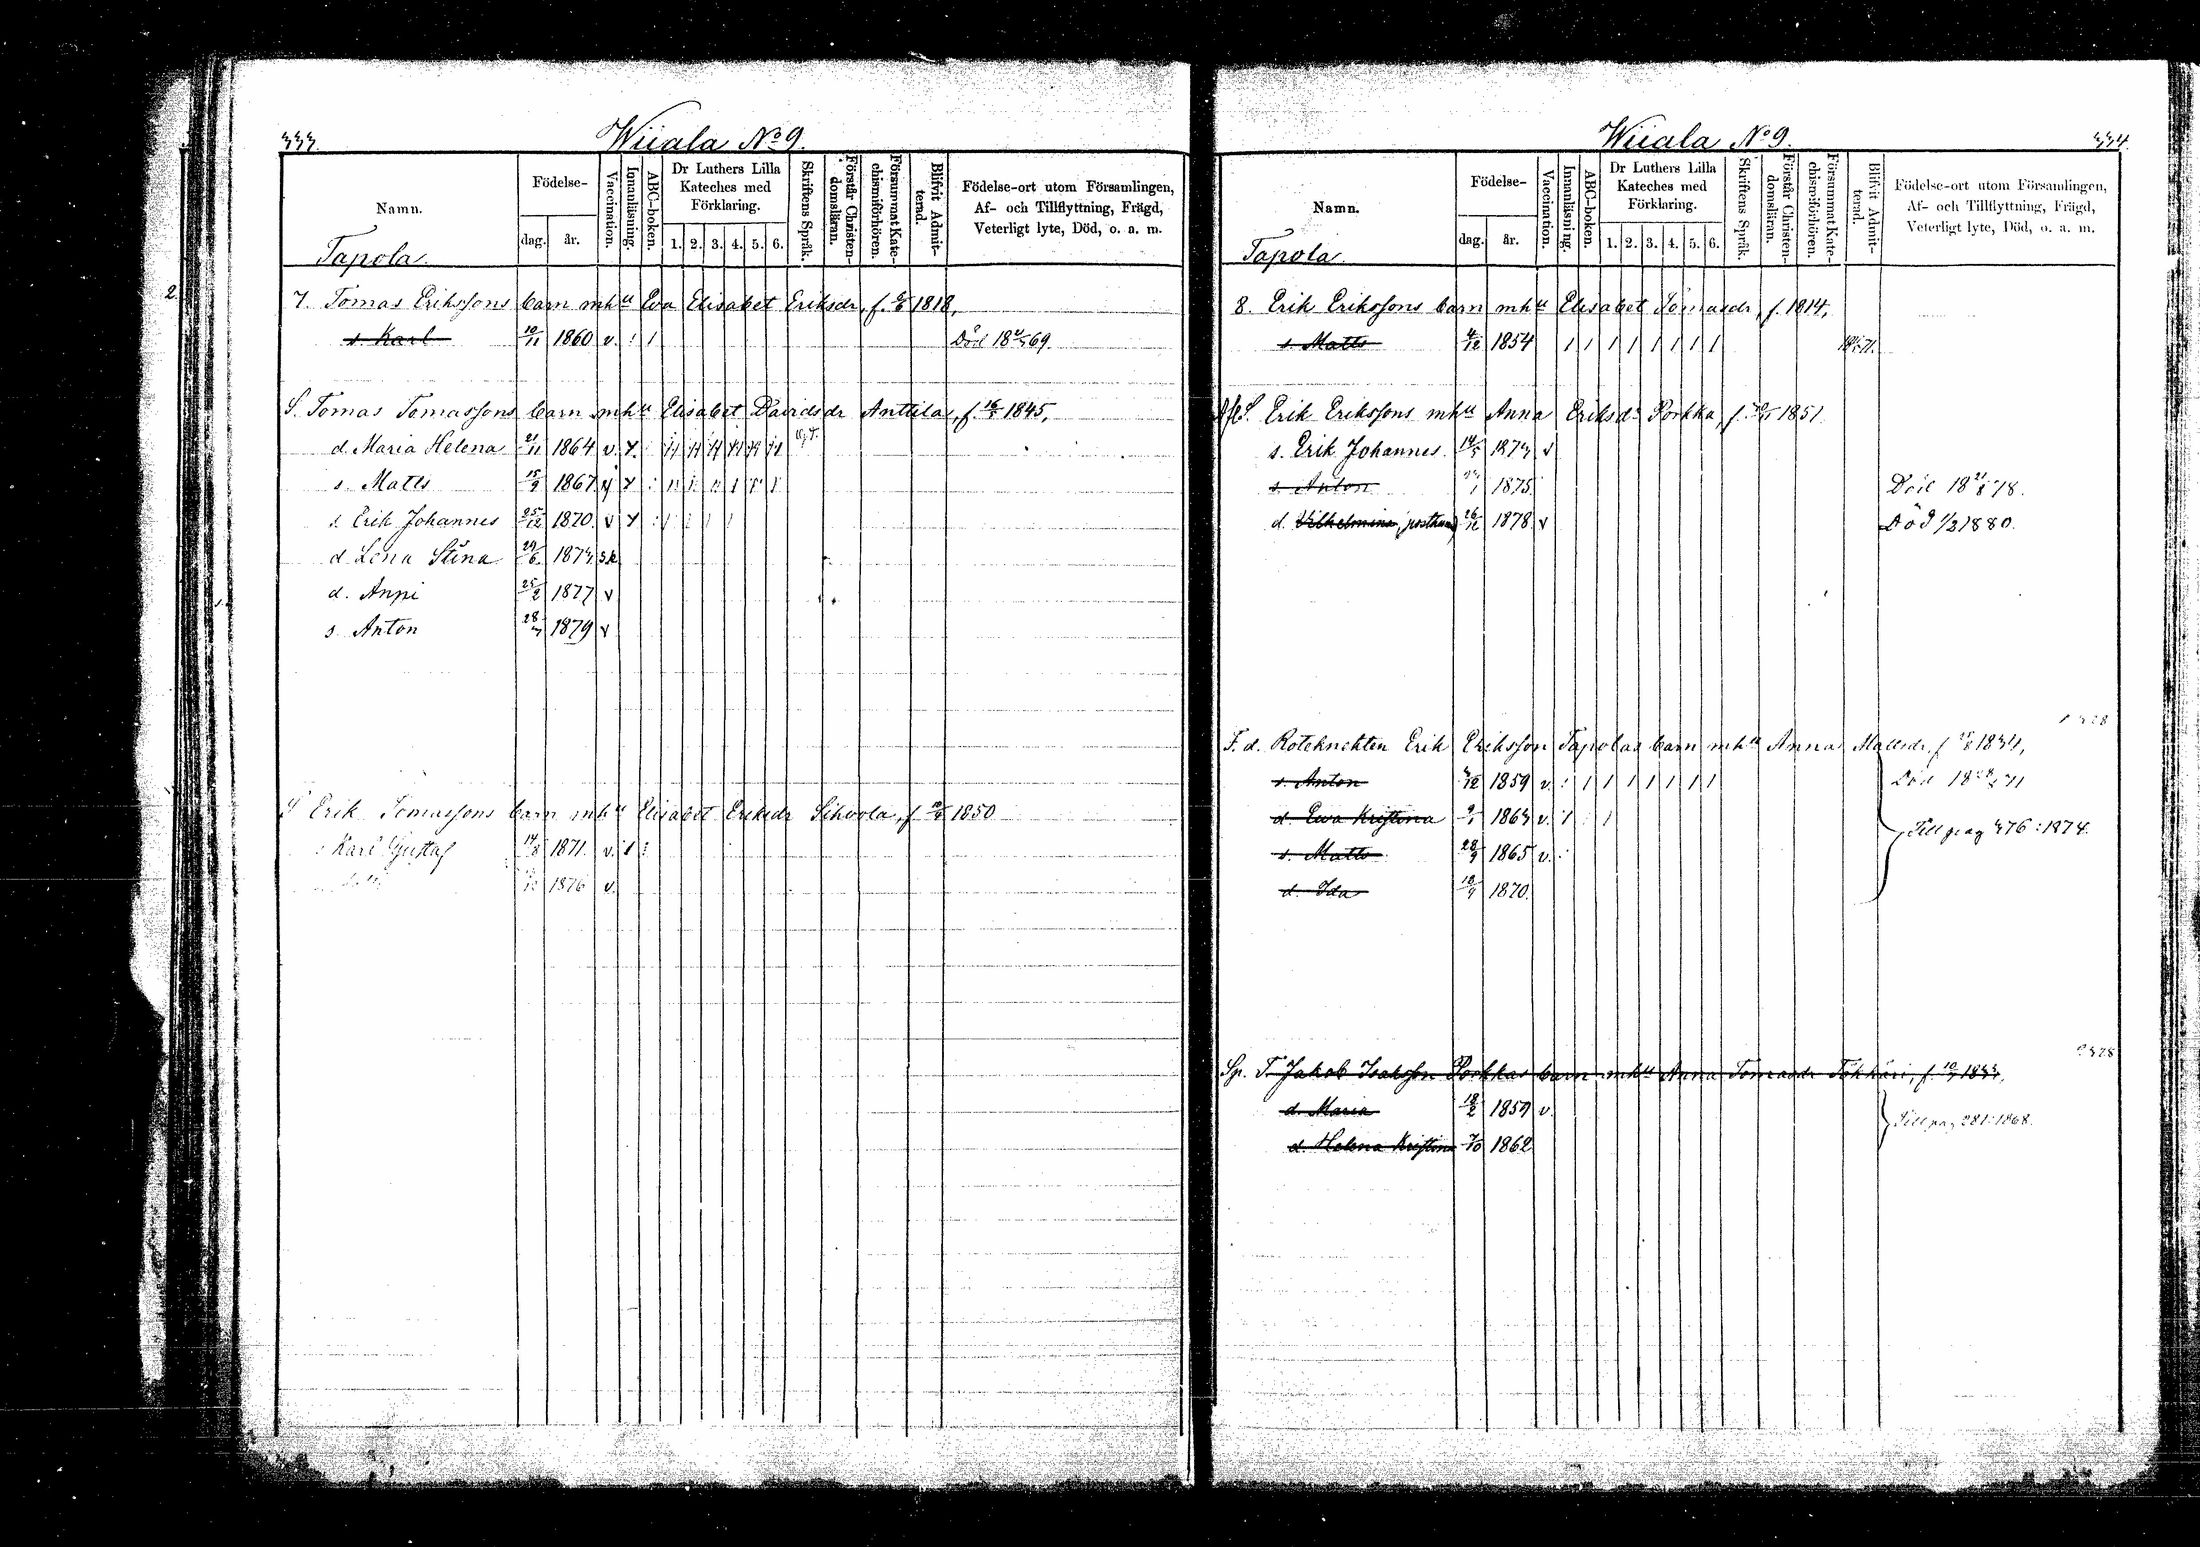 333.
Wiiala No 9.
Namn.
Födelse-
dag.
år.
Vaccination.
Innanläsning.
ABC-boken.
Dr Luthers Lilla Kateches med Förklaring.
1. 2. 3. 4. 5. 6.
Skriftens Språk.
Förstår Christen-domsläran.
Försummat Kate-chismiförhören.
Blifvit Admit-terad.
Födelse-ort utom Församlingen, Af- och Tillflyttning, Frägd, Veterligt lyte, Död, o. a. m.
Tapola.
2
7. Tomas Erikssons barn mhu Eva Elisabet Eriksdr, f. 1818,
s. Karl 10/11 1860 v. Död 69.
S. Tomas Tomassons barn mhu Elisabet Davidsdr Anttila, f. 1845,
d Maria Helena 21/11 1864 v.
s. Matts 15/9 1867
s. Erik Johannes 25/12 1870. v
d Lena Stina 29/6 1873
d. Anni 25/2 1877 v
s. Anton 28/7 1879 v
S Erik Tomassons barn mhu Elisabet Eriksdr Sihvola, f. 1850
s Karl Gustaf 1871. v.
1876 v.
334.
Wiiala No 9.
Namn.
Födelse-
dag.
år.
Vaccination.
Innanläsning.
ABC-boken.
Dr Luthers Lilla Kateches med Förklaring.
1. 2. 3. 4. 5. 6.
Skriftens Språk.
Förstår Christen-domsläran.
Försummat Kate-chismiförhören.
Blifvit Admit-terad.
Födelse-ort utom Församlingen, Af- och Tillflyttning, Frägd, Veterligt lyte, Död, o. a. m.
Tapola
8. Erik Erikssons barn mhu Elisabet Tomasdr, f. 1814,
s. Matts 4/12 1854
Afl S. Erik Erikssons mhu Anna Eriksdr Porkka, f. 1851
s. Erik Johannes 14/5 1873 v
s. Anton 1875. Död 18 21/8 78.
d. Vilhelmina (posthum) 26/12 1878 v Död 1/2 1880.
F. d. Roteknekten Erik Eriksson Tapolas barn mhu Anna Mattsdr, f. 1834,
s. Anton 3/12 1859 v. Död 71
d. Eva Kristina 1863 v.
Till pag 376:1874.
s. Matts 28/9 1865 v.
d. Ida 18/9 1870.
Sp. T Jakob Isaksson Porkkas barn mhu Anna Tomasdr Tökkäri, f. 1833,
d. Maria 18/2 1859 v.
Till pag 281:1868.
d. Helena Kristina 7/10 1862